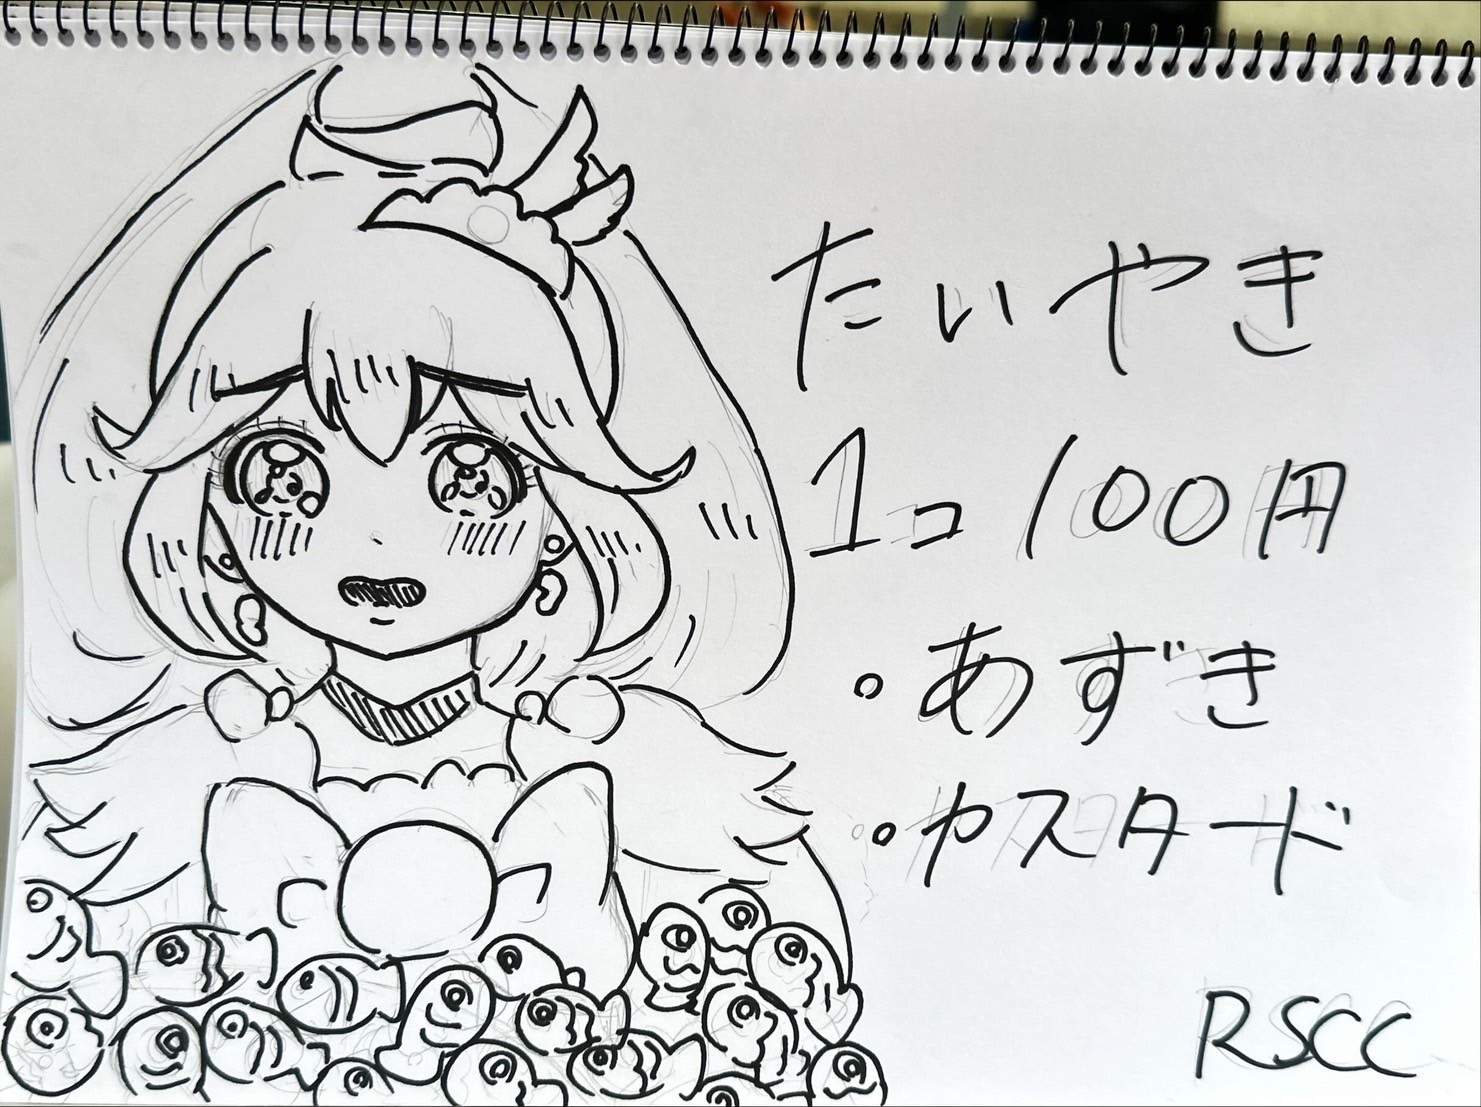 たいやき
1コ100円
・あずき
・カスタード
RSCC